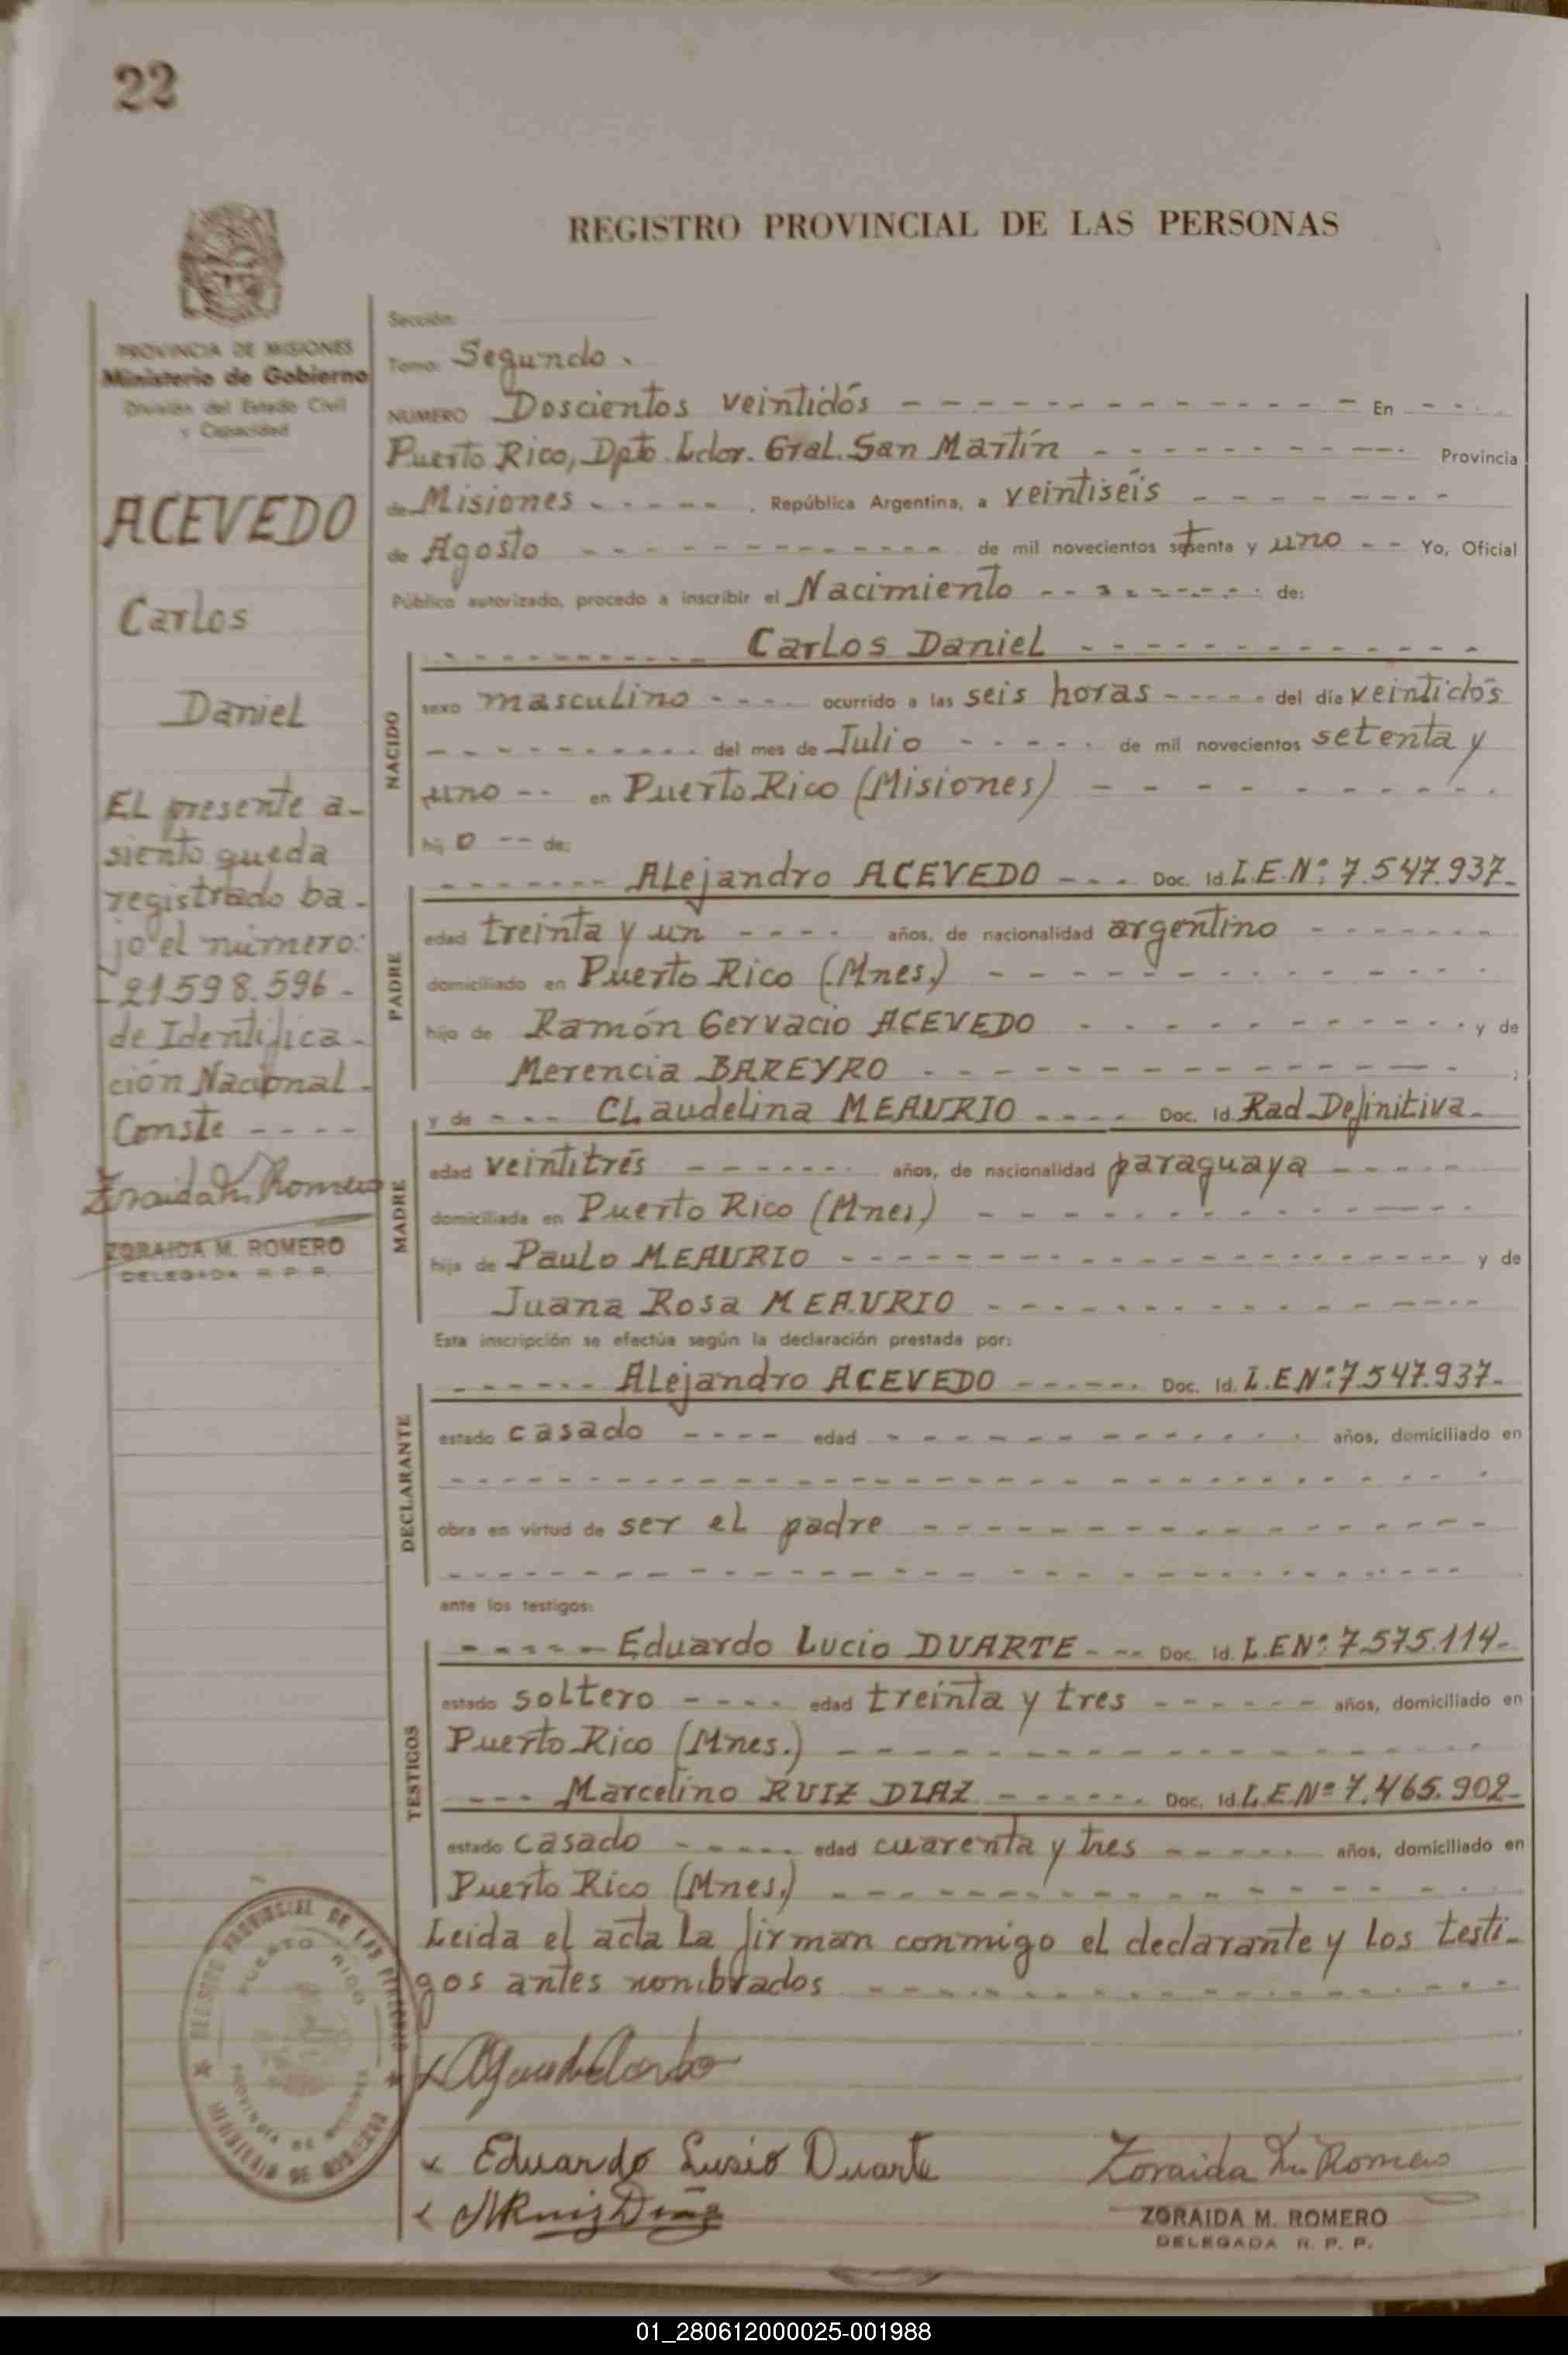 22
REGISTRO PROVINCIAL DE LAS PERSONAS
PROVINCIA DE MISIONES
Ministerio de Gobierno
División del Estado Civil
y Capacidad
ACEVEDO
Carlos
Daniel
EL presente a-
siento queda
registrado ba-
jo el número:
-21.598.596-
de Identifica-
ción Nacional-
Conste ----
Zoraida M. Romero
ZORAIDA M. ROMERO
DELEGADA R. P. P.
Sección:
Tomo: Segundo.
NUMERO Doscientos veintidós - - - En - - -
Puerto Rico, Dpto. Ldor. Gral. San Martín - - - Provincia
de Misiones - - - , República Argentina, a veintiseis - - -
de Agosto - - - de mil novecientos setenta y uno - - Yo, Oficial
Público autorizado, procedo a inscribir el Nacimiento - - - de:
NACIDO
- - - Carlos Daniel - - -
sexo masculino - - - ocurrido a las seis horas - - - del día veintidós
- - - del mes de Julio - - - de mil novecientos setenta y
uno - - en Puerto Rico (Misiones) - - -
hij o -- de:
PADRE
- - - Alejandro ACEVEDO - - - Doc. Id. L.E.Nº: 7.547.937-
edad treinta y un - - - años, de nacionalidad argentino - - -
domiciliado en Puerto Rico (Mnes.) - - -
hijo de Ramón Gervacio ACEVEDO - - - y de
Merencia BAREYRO - - - ;
MADRE
y de - - - CLaudelina MEAURIO - - - Doc. Id. Rad. Definitiva-
edad veintitrés - - - años, de nacionalidad paraguaya - - -
domiciliada en Puerto Rico (Mnes) - - -
hija de Paulo MEAURIO - - - y de
Juana Rosa MEAURIO - - -
Esta inscripción se efectúa según la declaración prestada por:
DECLARANTE
- - - Alejandro ACEVEDO - - - Doc. Id. L.E.Nº: 7.547.937-
estado casado - - - edad - - - años, domiciliado en
- - -
obra en virtud de ser el padre - - -
- - -
ante los testigos:
TESTIGOS
- - - Eduardo Lucio DUARTE - - - Doc. Id. L.E.Nº: 7.575.114-
estado soltero - - - edad treinta y tres - - - años, domiciliado en
Puerto Rico (Mnes.) - - -
- - - Marcelino RUIZ DIAZ - - - Doc. Id. L.E.Nº 7.465.902-
estado casado - - - edad cuarenta y tres - - - años, domiciliado en
Puerto Rico (Mnes.) - - -
Leida el acta la firman conmigo el declarante y los testi-
gos antes nombrados - - -
PUERTO RICO
PROVINCIA DE MISIONES
MINISTERIO DE GOBIERNO
x Eduardo Lusio Duarte
x MRuiz Diaz
Zoraida M. Romero
ZORAIDA M. ROMERO
DELEGADA R. P. P.
01_280612000025-001988